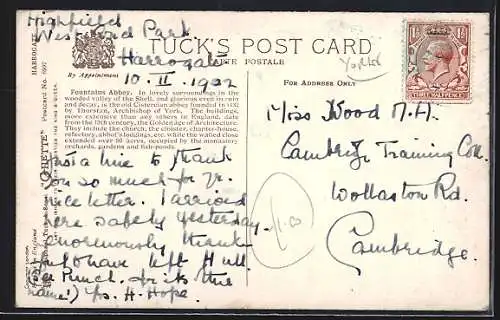 Highfield
West End Park
Harrogate
10. II. 1922
TUCK'S POST CARD
CARTE POSTALE
By Appointment
FOR ADDRESS ONLY
Fountains Abbey. In lovely surroundings in the
wooded valley of the Skell, and glorious even in ruin
and decay, is the old Cistercian abbey founded in 1132
by Thurstan, Archbishop of York. The buildings,
more extensive than any others in England, date
from the 12th century, the Golden Age of Architecture.
They include the church, the cloister, chapter-house,
refectory, abbot's lodgings, etc., while the walled close
extended over 80 acres, occupied by the monastery
orchards, gardens and fish-ponds.
Just a line to thank
you so much for yr.
nice letter. I arrived
here safely yesterday.
enormously thank
to have left Hull.
(or Punch. or its the
name!) Yrs. H. Hope.
Miss Wood M.A.
Cambridge Training Coll.
Wollaston Rd.
Cambridge.
HARROGATE
"OILETTE"